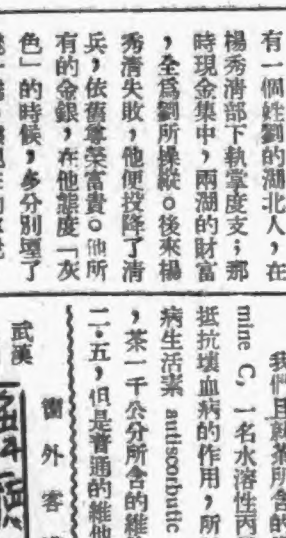 有一個姓劉的湖北人,在
楊秀清部下執掌度支;那
時現金集中,兩湖的財富
,全爲劉所操縱。後來楊
秀清失敗,他便投降了清
兵,依舊拿榮富貴。他所
有的金銀,在他態度「灰
色」的時候,多分別堙了
我們且就茶所含的
mine C, 一名水溶性丙
抵抗壞血病的作用,所
病生活素 antiscorbutic
,茶一千公分所含的維
二.五,但是普通的維他
窗外客
武漢